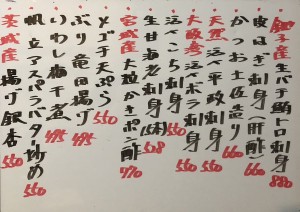 銚子産生バチ鮪トロ刺身 880
皮はぎ刺身(肝酢) 660
かつお土佐造り 660
天然活〆平政刺身 550
大阪湾活〆ボラ刺身 550
活〆こち刺身 550
生甘海老刺身(5本) 528
宮城産大粒かきポン酢 770
めごち天ぷら 550
ぶり竜田揚げ 495
いわし梅干煮 495
帆立アスパラバター炒め 550
茨城産揚げ銀杏 550